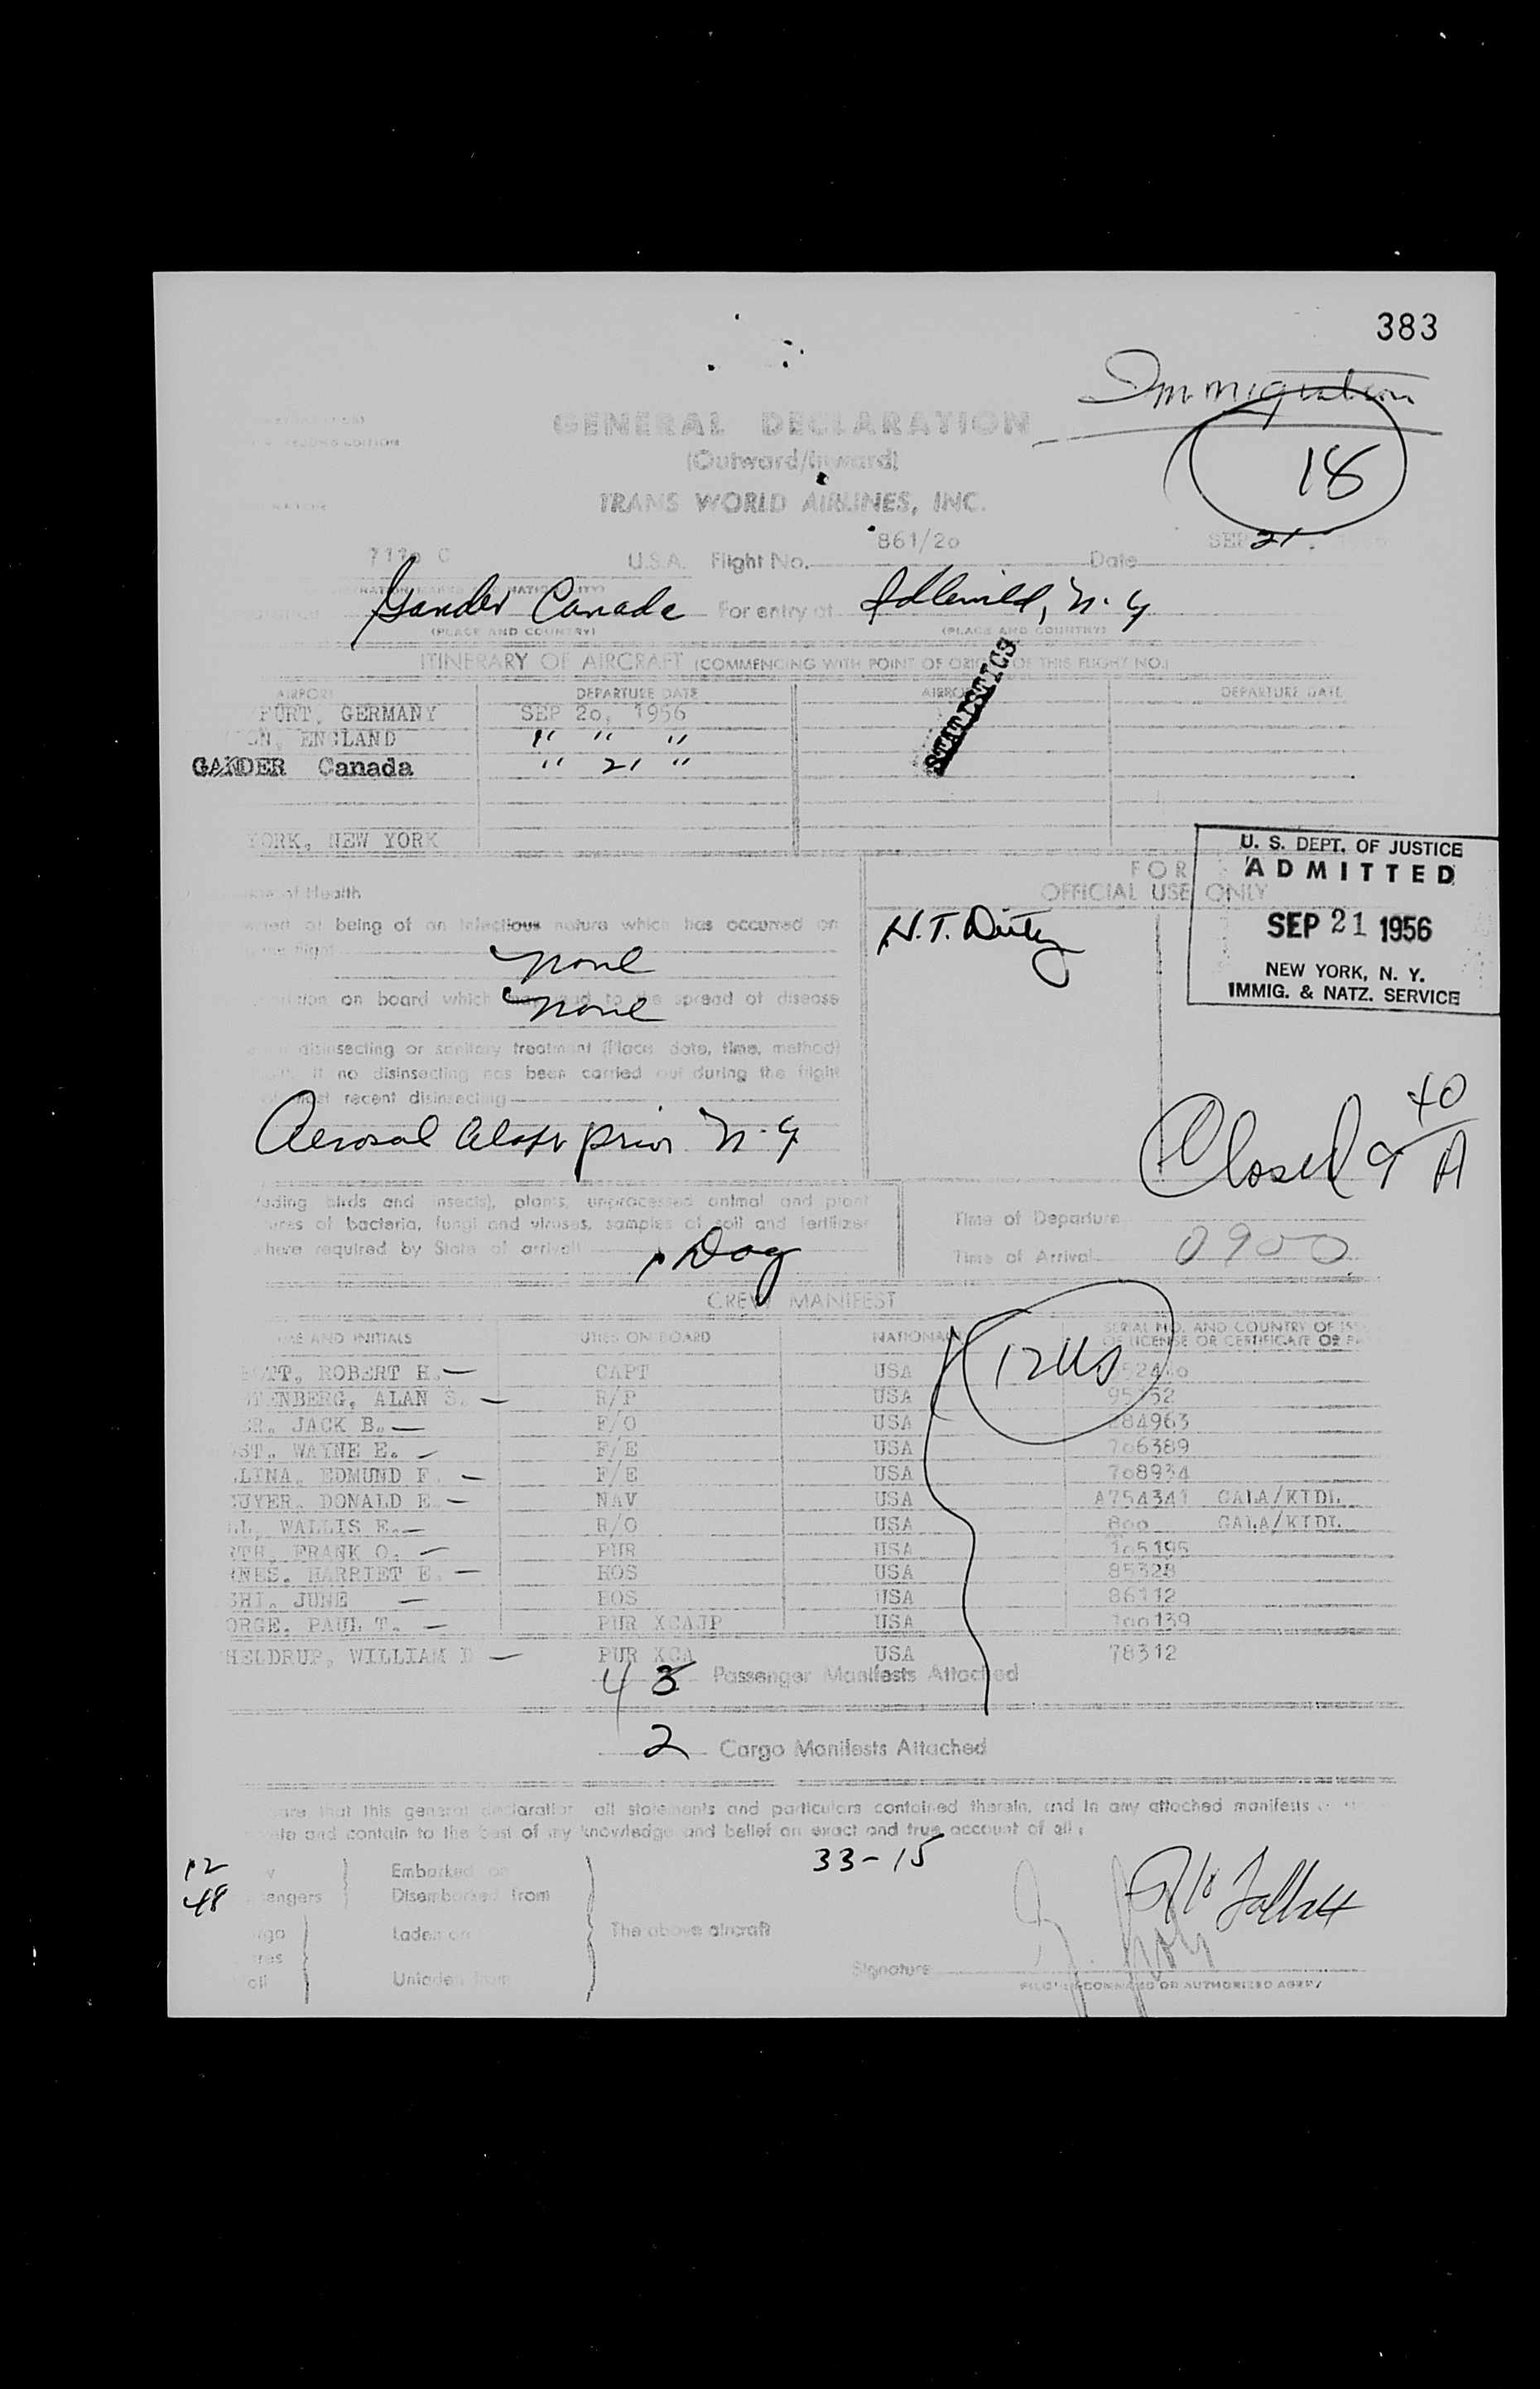 383
Immigration
18
SECOND EDITION
GENERAL DECLARATION
(Outward/Inward)
TRANS WORLD AIRLINES, INC.
U.S.A. Flight No. 861/20 Date SEP 21
Gander Canada For entry at Idlewild, N.Y
(PLACE AND COUNTRY) (PLACE AND COUNTRY)
ITINERARY OF AIRCRAFT (COMMENCING WITH POINT OF ORIGIN OF THIS FLIGHT NO.)
AIRPORT DEPARTURE DATE AIRPORT DEPARTURE DATE
FURT, GERMANY SEP 20, 1956
ON, ENGLAND " " "
GANDER Canada " 21 "
STATISTICS
YORK, NEW YORK
U. S. DEPT. OF JUSTICE
ADMITTED
SEP 21 1956
NEW YORK, N. Y.
IMMIG. & NATZ. SERVICE
FOR
OFFICIAL USE ONLY
of Health
being of an infectious nature which has occurred on
flight
none
on board which may lead to the spread of disease
none
disinsecting or sanitary treatment (Place, date, time, method)
if no disinsecting has been carried out during the flight
most recent disinsecting
Aerosol prior N.Y
Closed
birds and insects), plants, unprocessed animal and plant
tures of bacteria, fungi and viruses, samples of soil and fertilizer
where required by State of arrival)
1 Dog
Time of Departure
Time of Arrival 0900
CREW MANIFEST
ME AND INITIALS DUTIES ON BOARD NATIONALITY SERIAL NO. AND COUNTRY OF
OF LICENSE OR CERTIFICATE OR
12 US
OTT, ROBERT H. — CAPT USA
ENBERG, ALAN S. — R/P USA
ER, JACK B. — F/O USA 84963
ST, WAYNE E. — F/E USA 706389
LINA, EDMUND F. — F/E USA 708934
UYER, DONALD E. — NAV USA A754341 GALA/KIDL
LL, WALLIS E. — R/O USA 800 GALA/KIDL
RTH, FRANK O. — PUR USA 105195
NES, HARRIET E. — HOS USA 85328
SHI, JUNE — HOS USA 86112
ORGE, PAUL T. — PUR XCAJP USA 100139
HELDRUP, WILLIAM D — PUR XCA USA 78312
4 3 Passenger Manifests Attached
2 Cargo Manifests Attached
that this general declaration all statements and particulars contained therein, and in any attached manifests
and contain to the best of my knowledge and belief an exact and true account of all
33-15
12 Embarked on
48 engers Disembarked from
Laden on The above aircraft
Unladen from
Signature
PILOT IN COMMAND OR AUTHORIZED AGENT